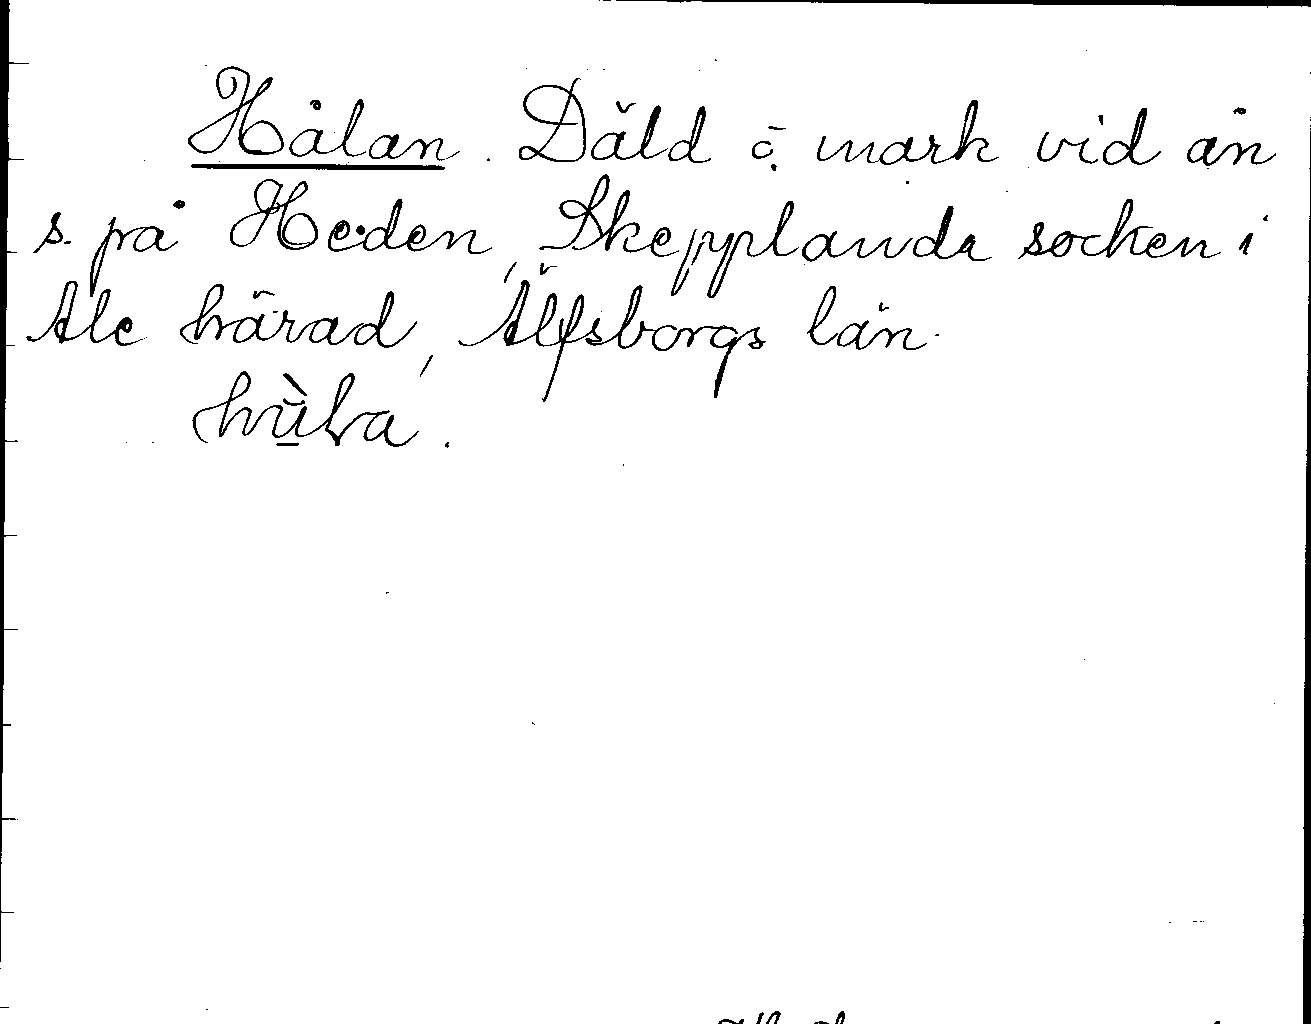 Hålan. Däld o. mark vid ån
s. på Heden, Skepplanda socken i
Ale härad, Älfsborgs län.